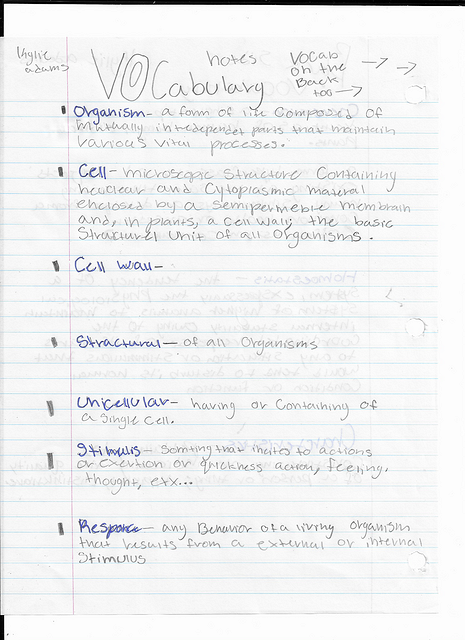 Kylie adams
VOCabulary
notes
Vocab on the Back too
Organism- a form of life Composed of
mutually interdependet parts that maintain
various vital processes.
Cell- microscopic Structure Containing
nuclear and Cytoplasmic material
enclosed by a semipermeble membrain
and, in plants, a cell wall; the basic
Structural Unit of all Organisms.
Cell wall-
Structural- of all Organisms
Unicellular- having or Containing of
a single cell.
Stimulis- somting that incites to actions
or exertion or quickness action, feeling,
thought, etx...
Response- any Behavior of a living organism
that results from a external or internal
Stimulus